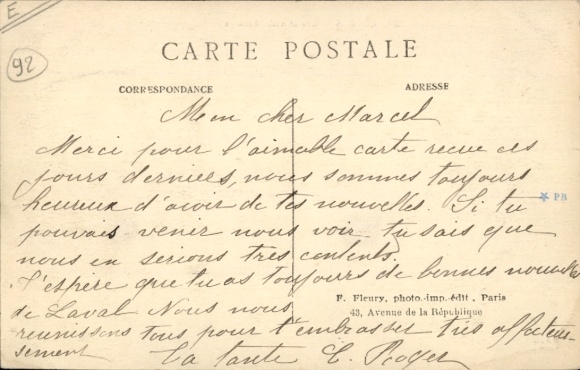 E
92
CARTE POSTALE
CORRESPONDANCE
ADRESSE
Mon cher Marcel
Merci pour l'aimable carte recue ces
jours derniers, nous sommes toujours
heureux d'avoir de tes nouvelles. Si tu
PB
pouvais venir nous voir tu sais que
nous en serions très contents.
J'espère que tu as toujours de bonnes nouvelles
de Laval Nous nous
F. Fleury, photo.-imp.-édit., Paris
43, Avenue de la République
reunissons tous pour t'embrasser très affectueu-
sement
ta tante E. Roger